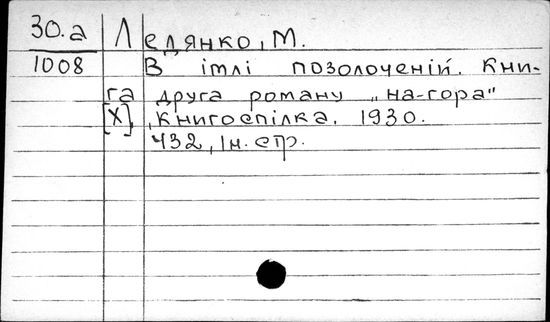 30.а Ледянко, М.
1008 В імлі позолоченій. Кни-
га друга роману „На-гора"
[Х], Книгоспілка, 1930.
432, Ін. стр.